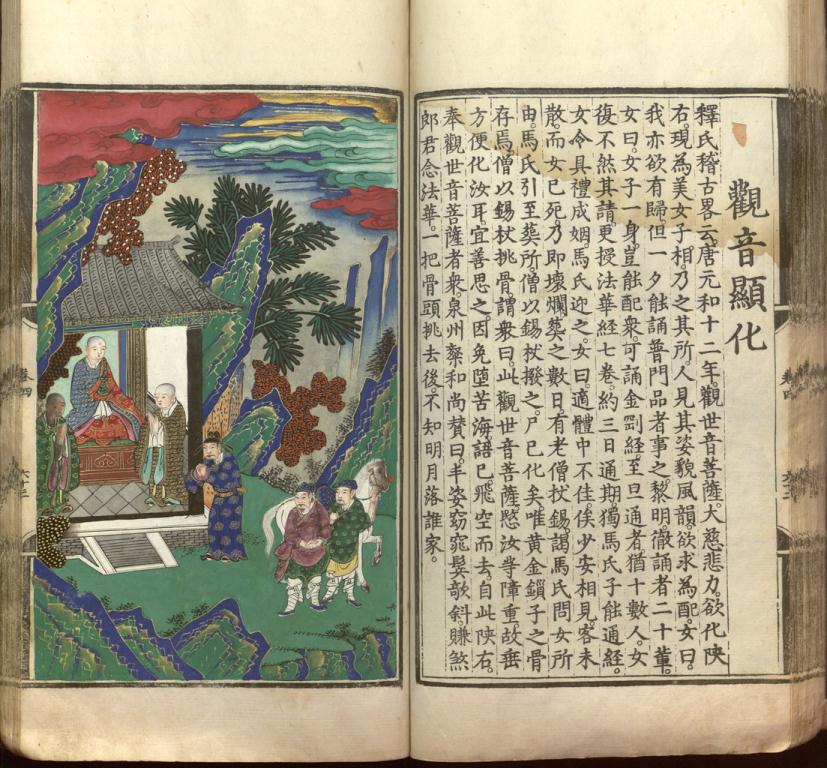 觀音顯化
釋氏稽古畧云唐元和十二年。觀世音菩薩。大慈悲力。欲化陝
右。現為美女子相。乃之其所。人見其姿貌風韻。欲求為配。女曰。
我亦欲有歸但一夕能誦普門品者事之。黎明。徹誦者二十軰。
女曰。女子一身。豈能配衆。可誦金剛經。至旦通者猶十數人。女
復不然其請更授法華經七卷。約三日通期。獨馬氏子能通經。
女令具禮成姻。馬氏迎之。女曰。適體中不佳。俟少安相見。客未
散。而女已死。乃即壞爛。葬之數日。有老僧扙錫。謁馬氏問女所
由。馬氏引至葬所。僧以錫杖撥之。尸已化矣。唯黄金鎖子之骨
存焉。僧以錫杖挑骨。謂衆曰。此觀世音菩薩。愍汝等障重。故垂
方便化汝耳。宜善思之。因免墮苦海。語已。飛空而去。自此陝右。
奉觀世音菩薩者衆。泉州粲和尚賛曰。丰姿窈窕鬂欹斜。賺煞
郎君念法華。一把骨頭挑去後。不知明月落誰家。
卷四
六十三